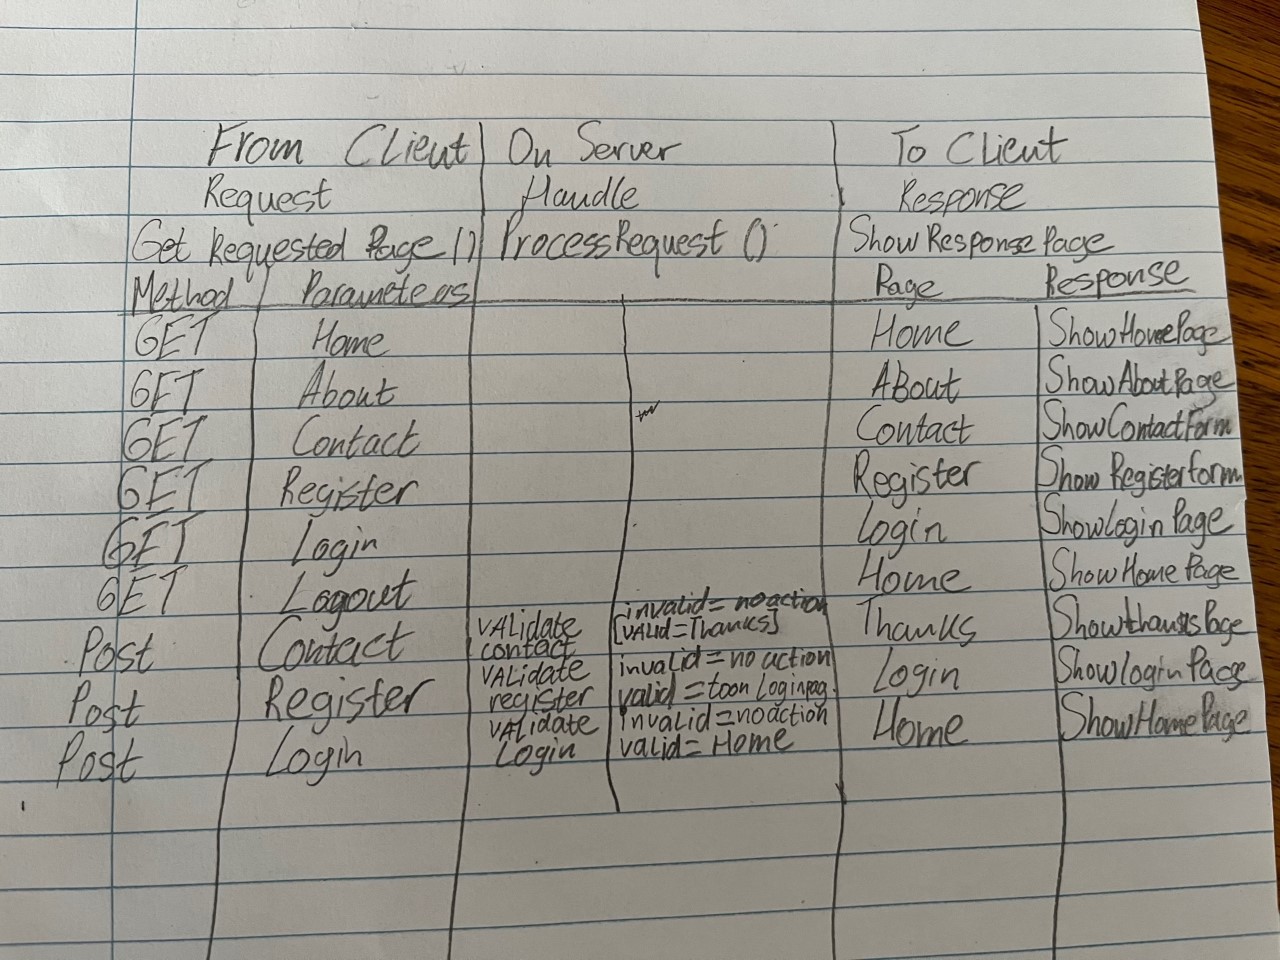 From Client On Server To Client
Request Handle Response
Get Requested Page () ProcessRequest () ShowResponsePage
Method Parameters Page Response
GET Home Home ShowHomePage
GET About ABout ShowAboutPage
GET Contact Contact ShowContactForm
GET Register Register ShowRegisterform
GET Login Login ShowloginPage
GET Logout Home ShowHomePage
Post Contact VALidate contact invalid = no action [VALid = Thanks] Thanks ShowthanksPage
Post Register VALidate register invalid = no action valid = toon Loginpag. Login ShowloginPage
Post Login VALidate Login invalid = no action valid = Home Home ShowHomePage